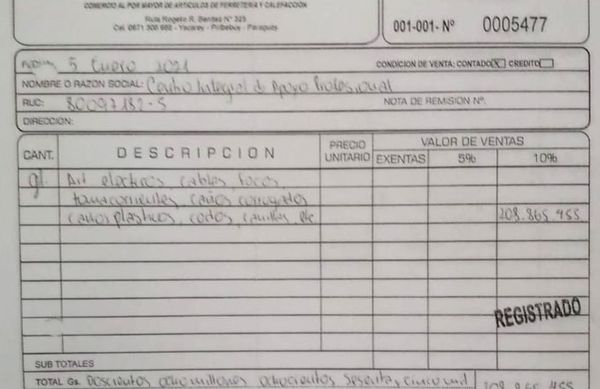 COMERCIO AL POR MAYOR DE ARTICULOS DE FERRETERIA Y CALEFACCIÓN
Ruta Rogelio R. Benítez Nº 325
Cel. 0971 300 962 - Yacarey - Piribebuy - Paraguay
001-001- Nº 0005477
5 Enero 2021 CONDICION DE VENTA: CONTADO X CREDITO
NOMBRE O RAZON SOCIAL: Centro Integral de Apoyo Profesional
RUC: 80097182-5 NOTA DE REMISION Nº.
DIRECCION:
CANT. DESCRIPCION PRECIO UNITARIO VALOR DE VENTAS
EXENTAS 5% 10%
gl. Art electricos cables, focos,
tomacorrientes, caños corrugados
caños plasticos, codos, canillas, etc 208.865.455
REGISTRADO
SUB TOTALES
TOTAL Gs. Doscientos ocho millones ochocientos sesenta y cinco mil 208.865.455